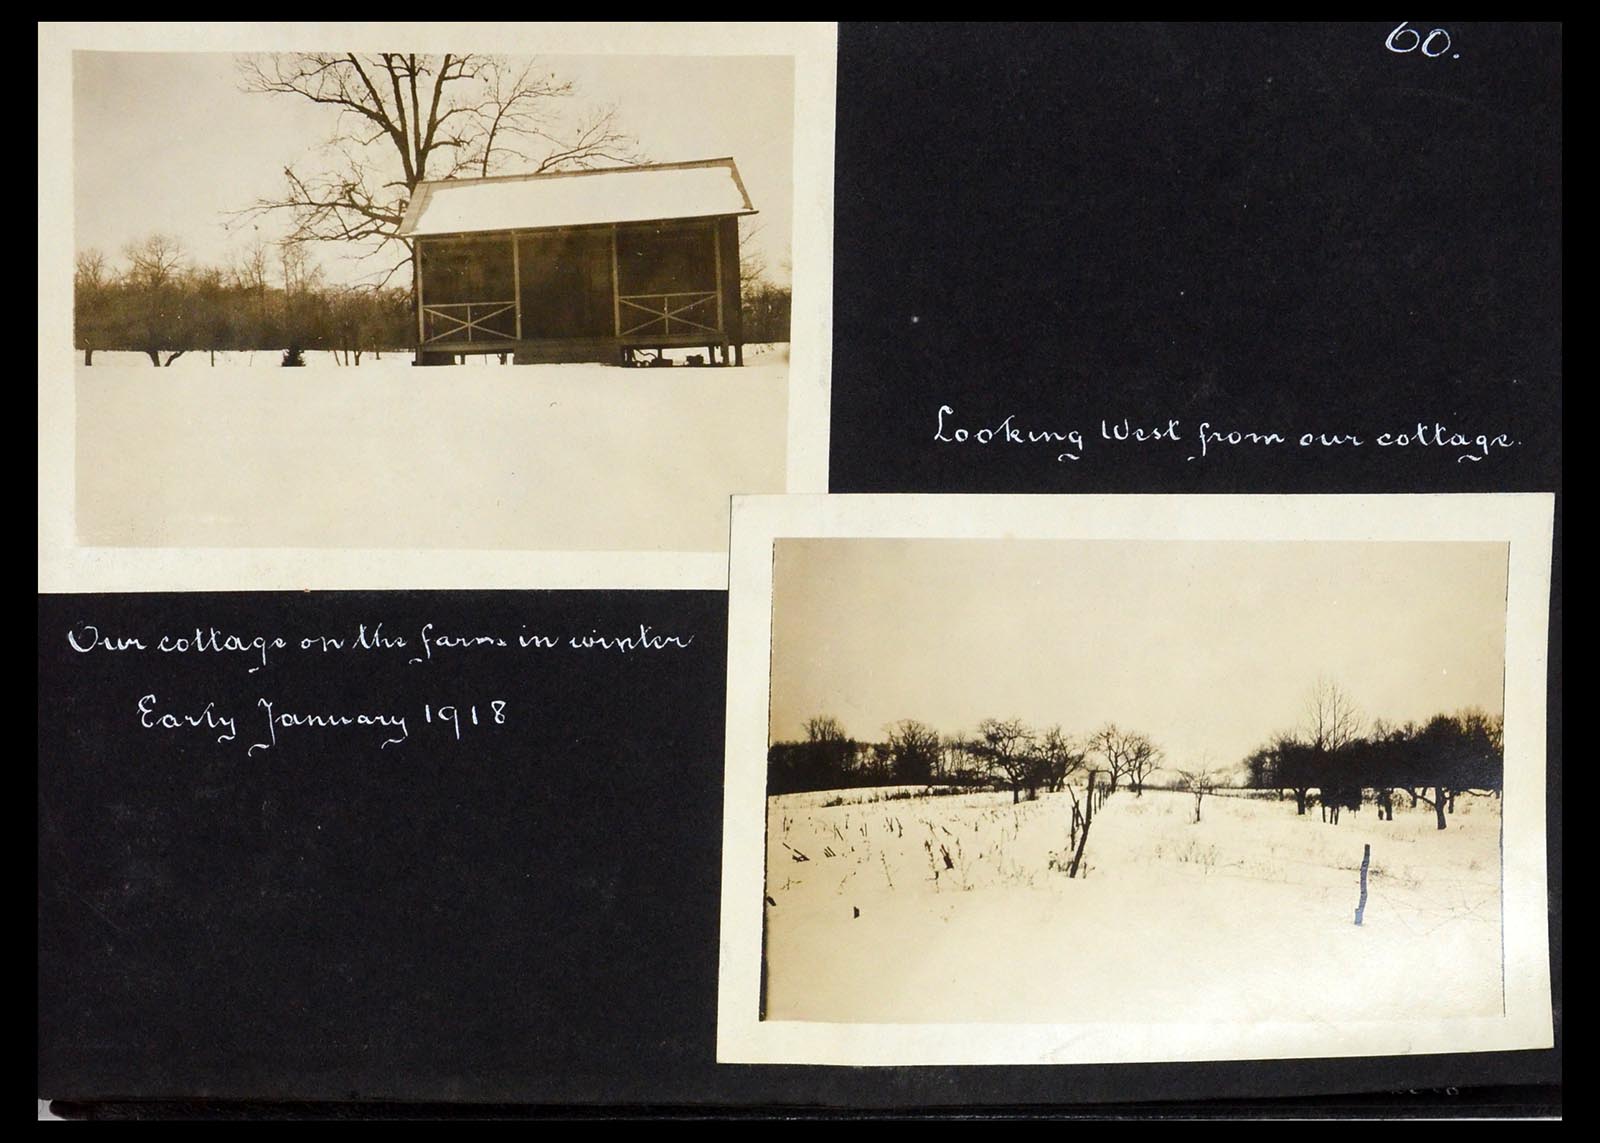 60.
Looking West from our cottage.
Our cottage on the farm in winter
Early January 1918